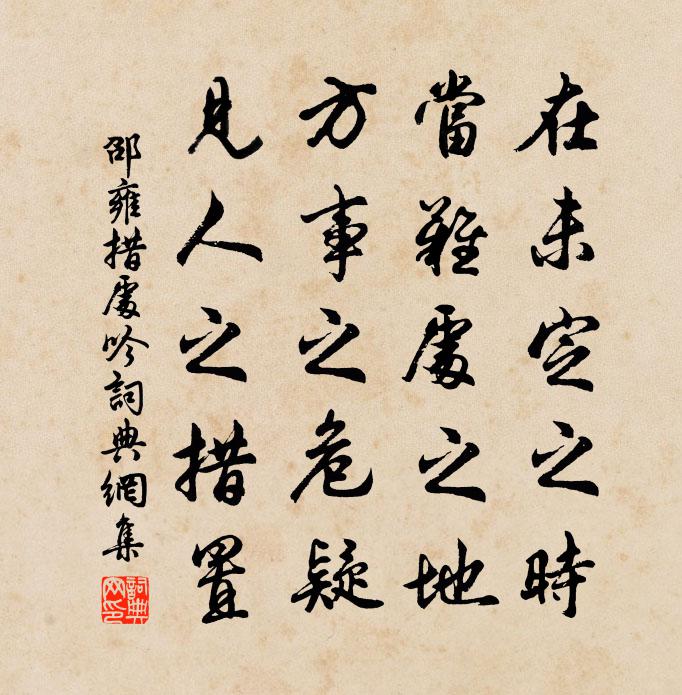 在未定之時
當難處之地
方事之危疑
見人之措置
邵雍措處吟詞典網集
詞典網印